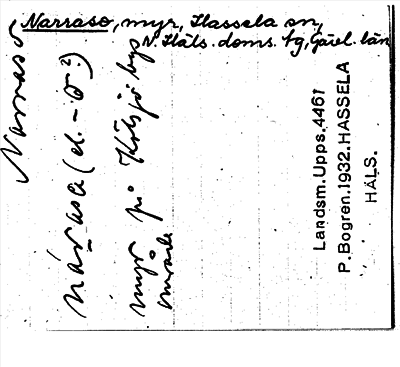 Narraso, myr, Hassela sn,
N. Häls. doms. tg, Gävl. län
Narraso
nárasα (el. -σ?)
myr på Kölsjö bys
område
Landsm. Upps. 4461
P. Bogren. 1932. HASSELA
HÄLS.